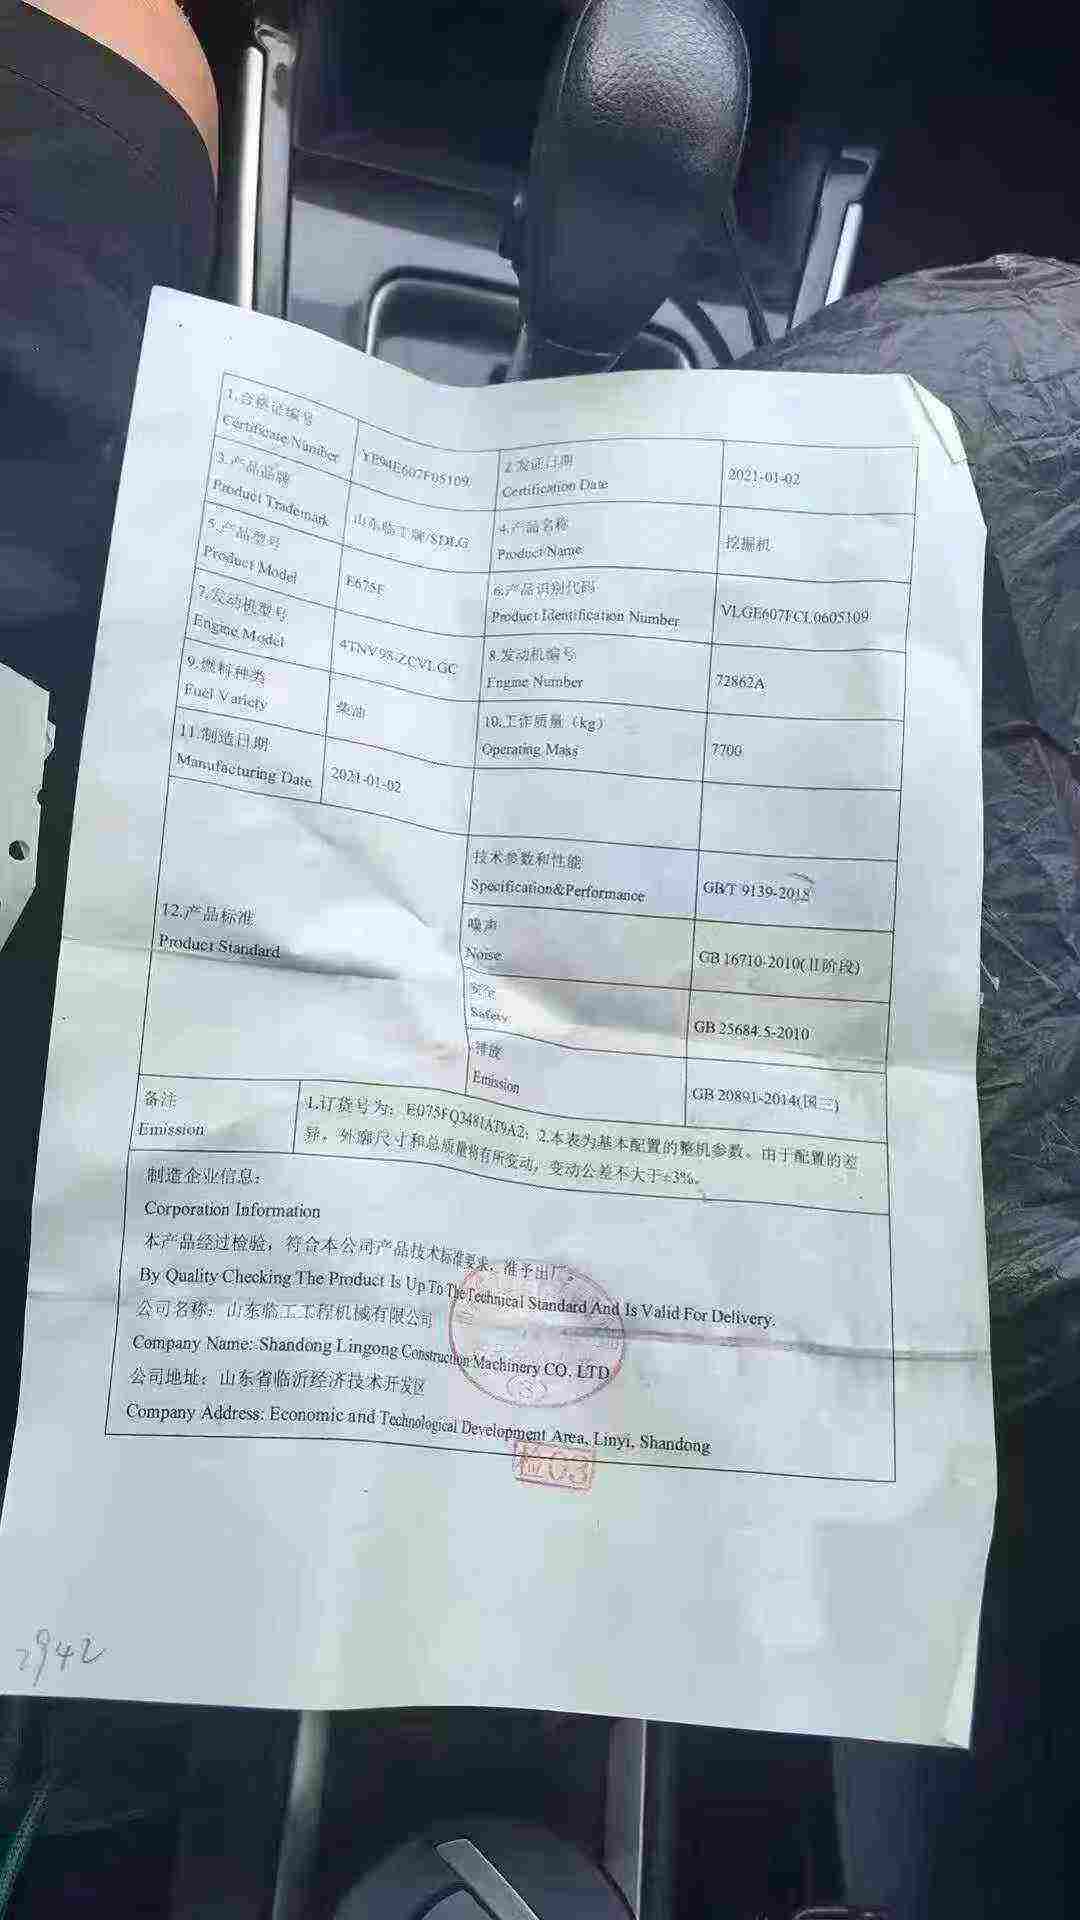 1.合格证编号
Certificate Number
YE94E607F05109
2.发证日期
Certification Date
2021-01-02
3.产品品牌
Product Trademark
山东临工牌/SDLG
4.产品名称
Product Name
挖掘机
5.产品型号
Product Model
E675F
6.产品识别代码
Product Identification Number
VLGE607FCL0605109
7.发动机型号
Engine Model
4TNV98-ZCVLGC
8.发动机编号
Engine Number
72862A
9.燃料种类
Fuel Variety
柴油
10.工作质量（kg）
Operating Mass
7700
11.制造日期
Manufacturing Date
2021-01-02
12.产品标准
Product Standard
技术参数和性能
Specification&Performance
GB/T 9139-2018
噪声
Noise
GB 16710-2010(II阶段)
安全
Safety
GB 25684.5-2010
排放
Emission
GB 20891-2014(国三)
备注
Emission
1.订货号为：E075FQ3481AT9A2；2.本表为基本配置的整机参数。由于配置的差
异，外廓尺寸和总质量将有所变动，变动公差不大于±3%。
制造企业信息：
Corporation Information
本产品经过检验，符合本公司产品技术标准要求，准予出厂。
By Quality Checking The Product Is Up To The Technical Standard And Is Valid For Delivery.
公司名称：山东临工工程机械有限公司
Company Name: Shandong Lingong Construction Machinery CO. LTD
(3)
公司地址：山东省临沂经济技术开发区
Company Address: Economic and Technological Development Area, Linyi, Shandong
检03
2942